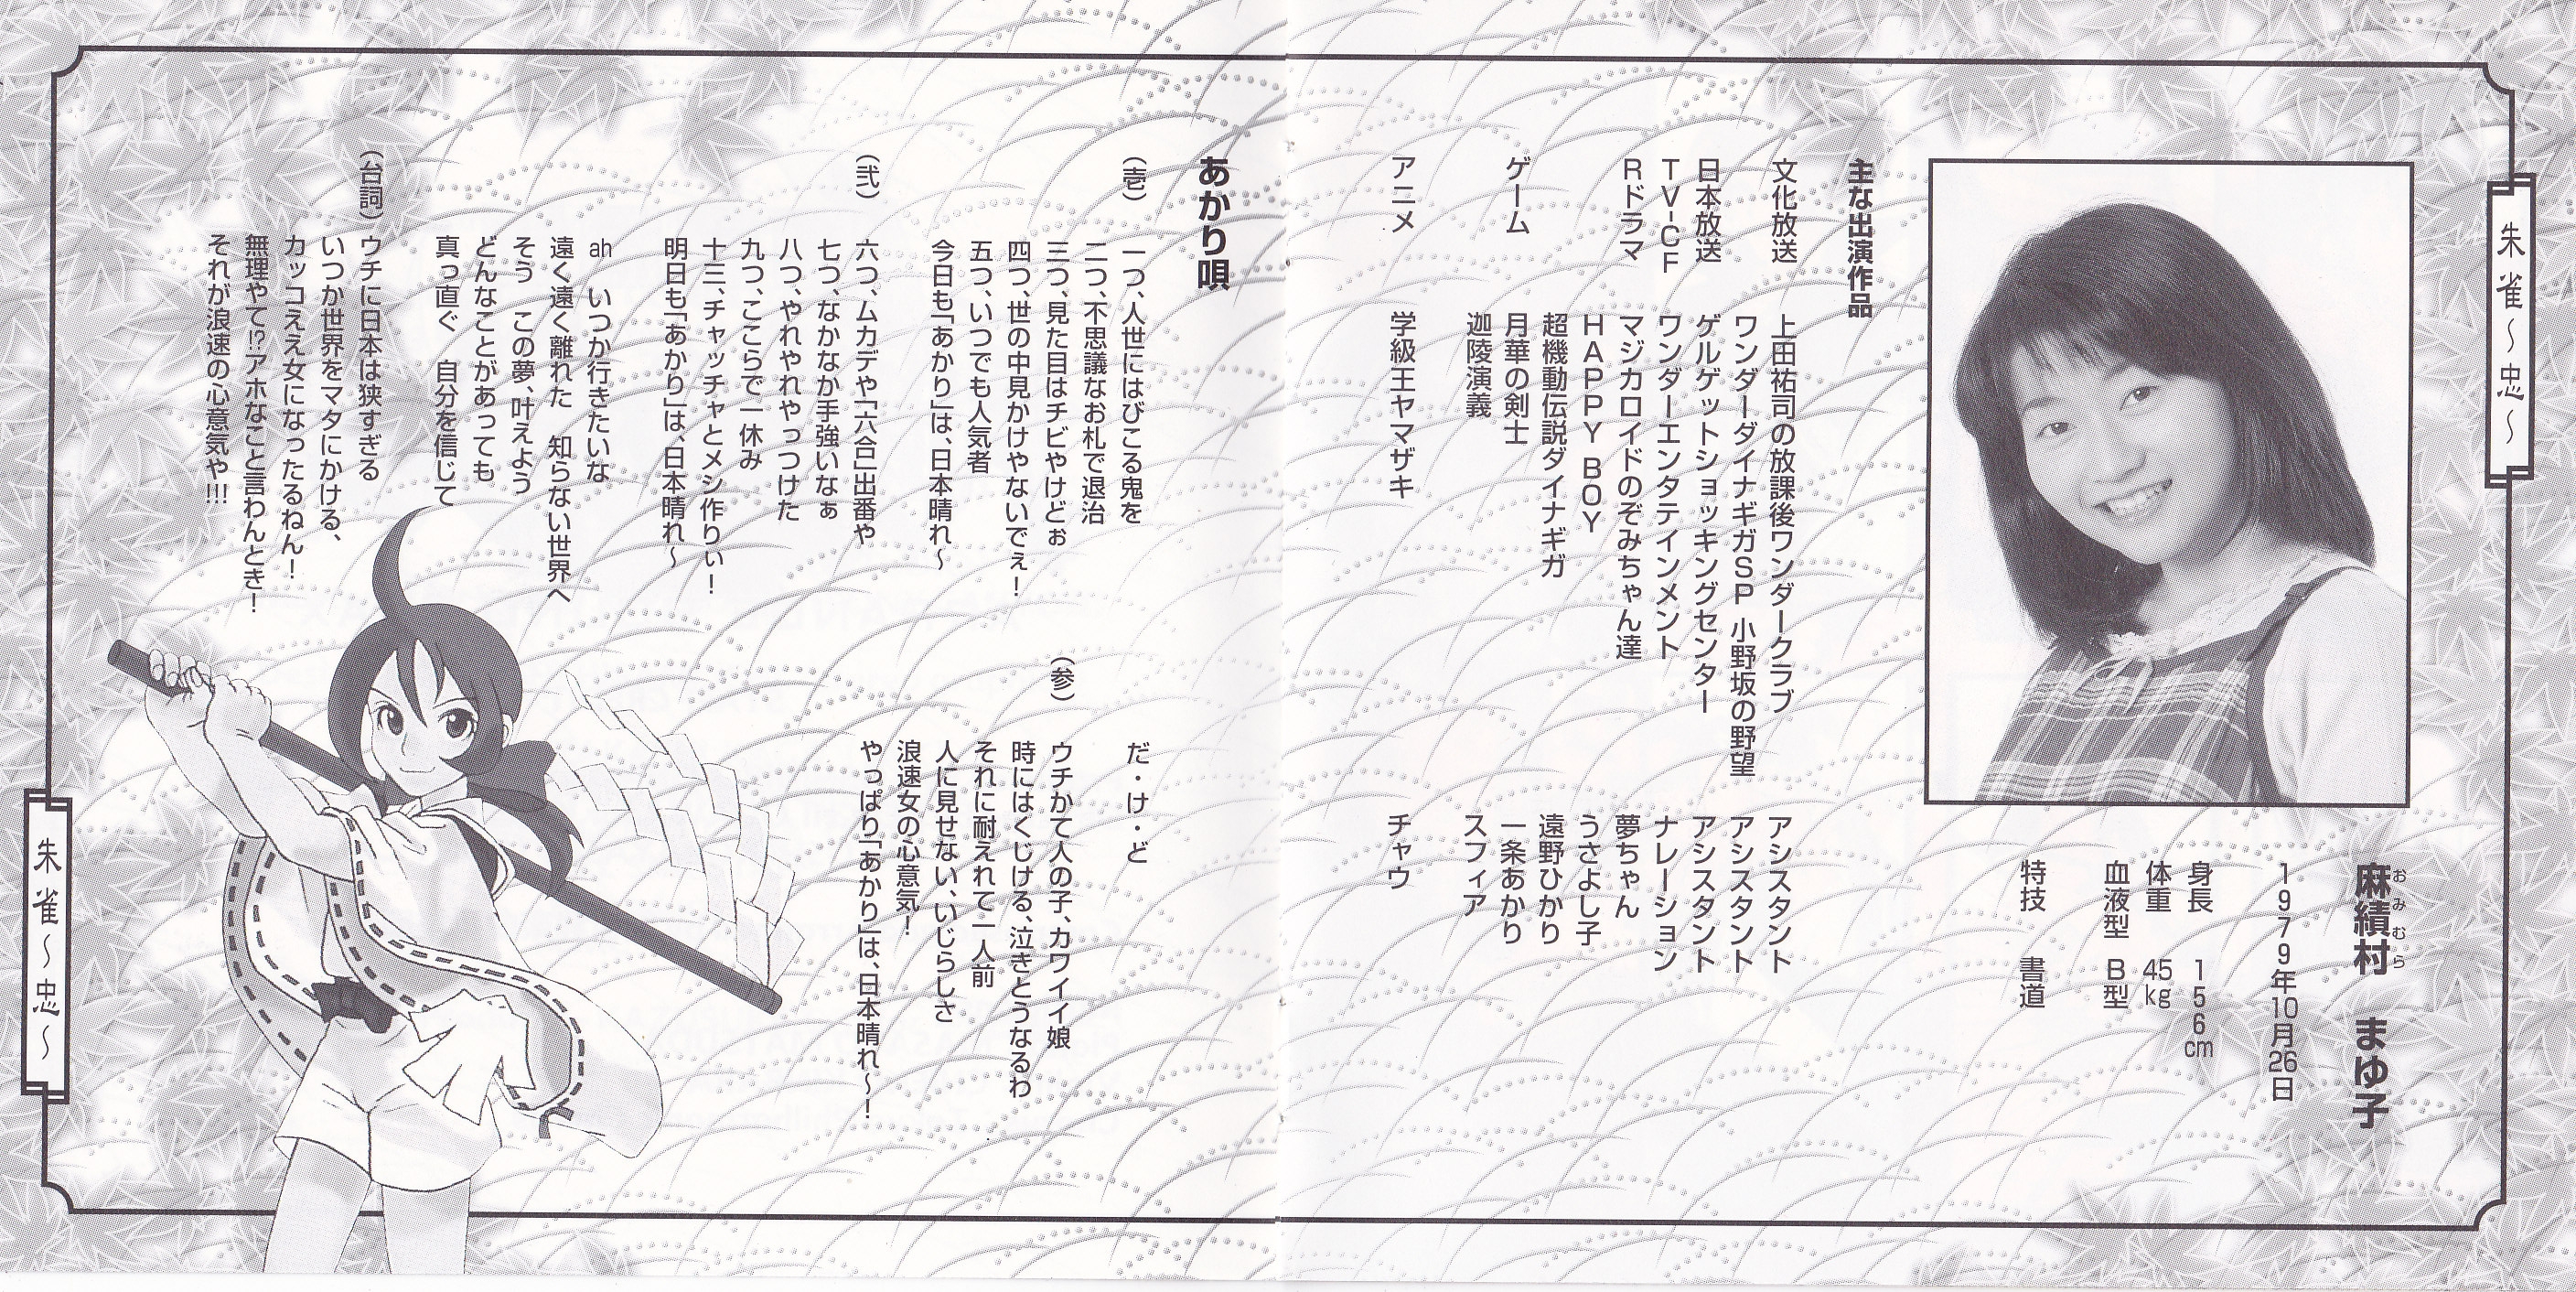 朱雀～忠～
麻績村 まゆ子
おみむら
1979年10月26日
身長 156cm
体重 45kg
血液型 B型
特技 書道
主な出演作品
文化放送 上田祐司の放課後ワンダークラブ アシスタント
ワンダーダイナギガSP 小野坂の野望 アシスタント
日本放送 ゲルゲットショッキングセンター アシスタント
TV-CF ワンダーエンタテインメント ナレーション
Rドラマ マジカロイドのぞみちゃん達 夢ちゃん
HAPPY BOY うさよし子
超機動伝説ダイナギガ 遠野ひかり
ゲーム 月華の剣士 一条あかり
迦陵演義 スフィア
アニメ 学級王ヤマザキ チャウ
あかり唄
（壱） 一つ、人世にはびこる鬼を
二つ、不思議なお札で退治
三つ、見た目はチビやけどぉ
四つ、世の中見かけやないでぇ！
五つ、いつでも人気者
今日も「あかり」は、日本晴れ～
（弐） 六つ、ムカデや「六合」出番や
七つ、なかなか手強いなぁ
八つ、やれやれやっつけた
九つ、ここらで一休み
十三、チャッチャとメシ作りぃ！
明日も「あかり」は、日本晴れ～
ah いつか行きたいな
遠く遠く離れた 知らない世界へ
そう この夢、叶えよう
どんなことがあっても
真っ直ぐ 自分を信じて
（台詞） ウチに日本は狭すぎる
いつか世界をマタにかける、
カッコええ女になったるねん！
無理やて!?アホなこと言わんとき！
それが浪速の心意気や!!!
だ・け・ど
（参） ウチかて人の子、カワイイ娘
時にはくじける、泣きとうなるわ
それに耐えれて一人前
人に見せない、いじらしさ
浪速女の心意気！
やっぱり「あかり」は、日本晴れ～！
朱雀～忠～